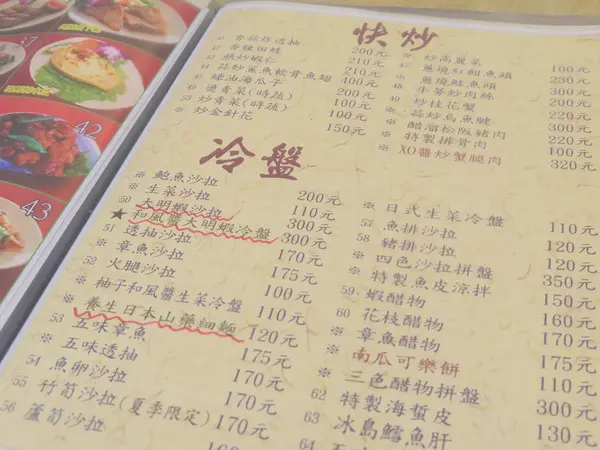 37
42
43
快炒
41 香蒜炒透抽 200元
42 香辣田蛙 210元
43 210元
44 240元
45 蠔油海瓜子 400元
46 100元
53 炒青菜(時蔬) 100元
※ 炒金針花 150元
※ 炒高麗菜 100元
47 蔥燒紅魽魚頭 230元
※ 蔥燒鮭魚頭 230元
48 牛蒡炒肉絲
※ 炒桂花蟹
※ 蒜炒烏魚腱
※ 醋溜松阪豬肉
※ 特製排骨肉
※ XO醬炒蟹腿肉 320元
冷盤
※ 鮑魚沙拉 200元
※ 生菜沙拉 110元
50 大明蝦沙拉 300元
★ 和風醬大明蝦冷盤 300元
51 透抽沙拉 170元
※ 章魚沙拉 175元
52 火腿沙拉 100元
※ 柚子和風醬生菜冷盤 110元
※ 養生日本山藥細麵 120元
53 五味章魚 175元
※ 五味透抽 170元
54 魚卵沙拉 170元
55 竹筍沙拉(夏季限定) 170元
56 蘆筍沙拉 160元
※ 日式生菜冷盤 110元
57 魚排沙拉 120元
58 豬排沙拉 120元
※ 四色沙拉拼盤 350元
※ 特製魚皮涼拌 150元
59. 蝦醋物 160元
60 花枝醋物 150元
※ 章魚醋物 175元
※ 南瓜可樂餅 110元
※ 三色醋物拼盤 300元
62 特製海蜇皮 130元
63 冰島鱈魚肝
64